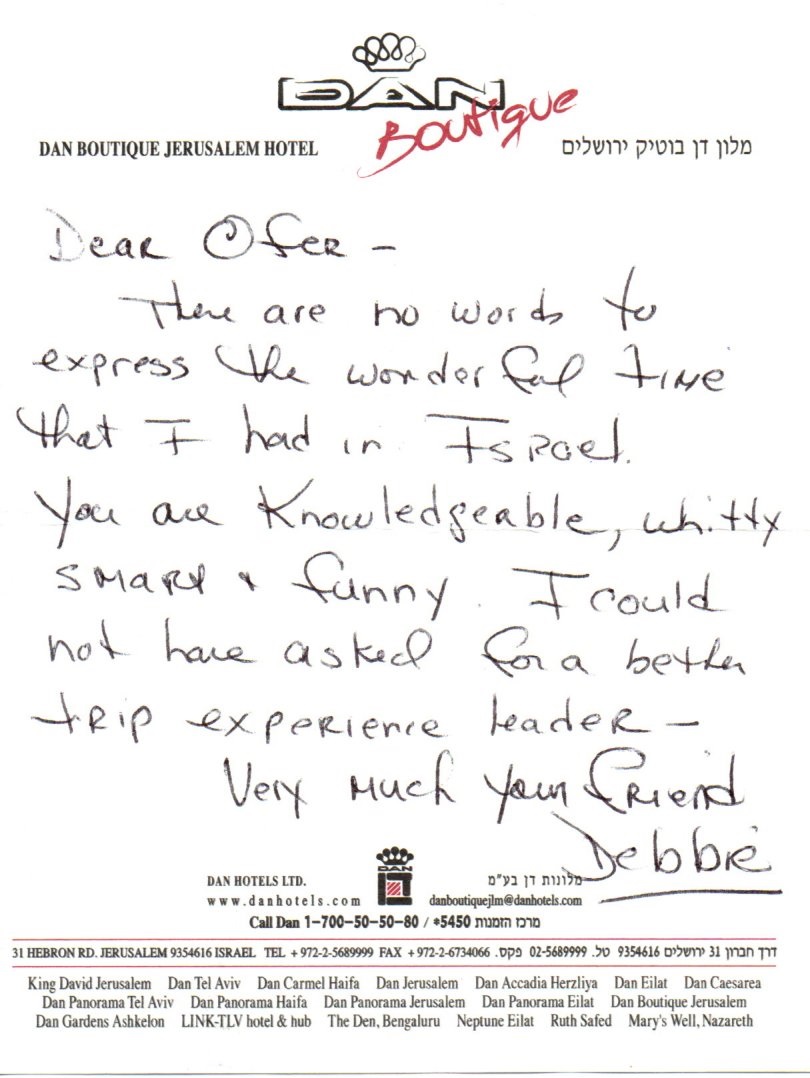 DAN
Boutique
DAN BOUTIQUE JERUSALEM HOTEL
מלון דן בוטיק ירושלים
Dear Ofer –
There are no words to
express the wonderful time
that I had in Israel.
You are Knowledgeable, whitty
smart + funny. I could
not have asked for a better
trip experience leader –
Very much your friend
Debbie
DAN HOTELS LTD.
DAN
מלונות דן בע"מ
www.danhotels.com
danboutiquejlm@danhotels.com
Call Dan 1-700-50-50-80 / *5450 מרכז הזמנות
31 HEBRON RD. JERUSALEM 9354616 ISRAEL TEL +972-2-5689999 FAX +972-2-6734066 דרך חברון 31 ירושלים 9354616 טל. 02-5689999 פקס.
King David Jerusalem Dan Tel Aviv Dan Carmel Haifa Dan Jerusalem Dan Accadia Herzliya Dan Eilat Dan Caesarea
Dan Panorama Tel Aviv Dan Panorama Haifa Dan Panorama Jerusalem Dan Panorama Eilat Dan Boutique Jerusalem
Dan Gardens Ashkelon LINK-TLV hotel & hub The Den, Bengaluru Neptune Eilat Ruth Safed Mary's Well, Nazareth